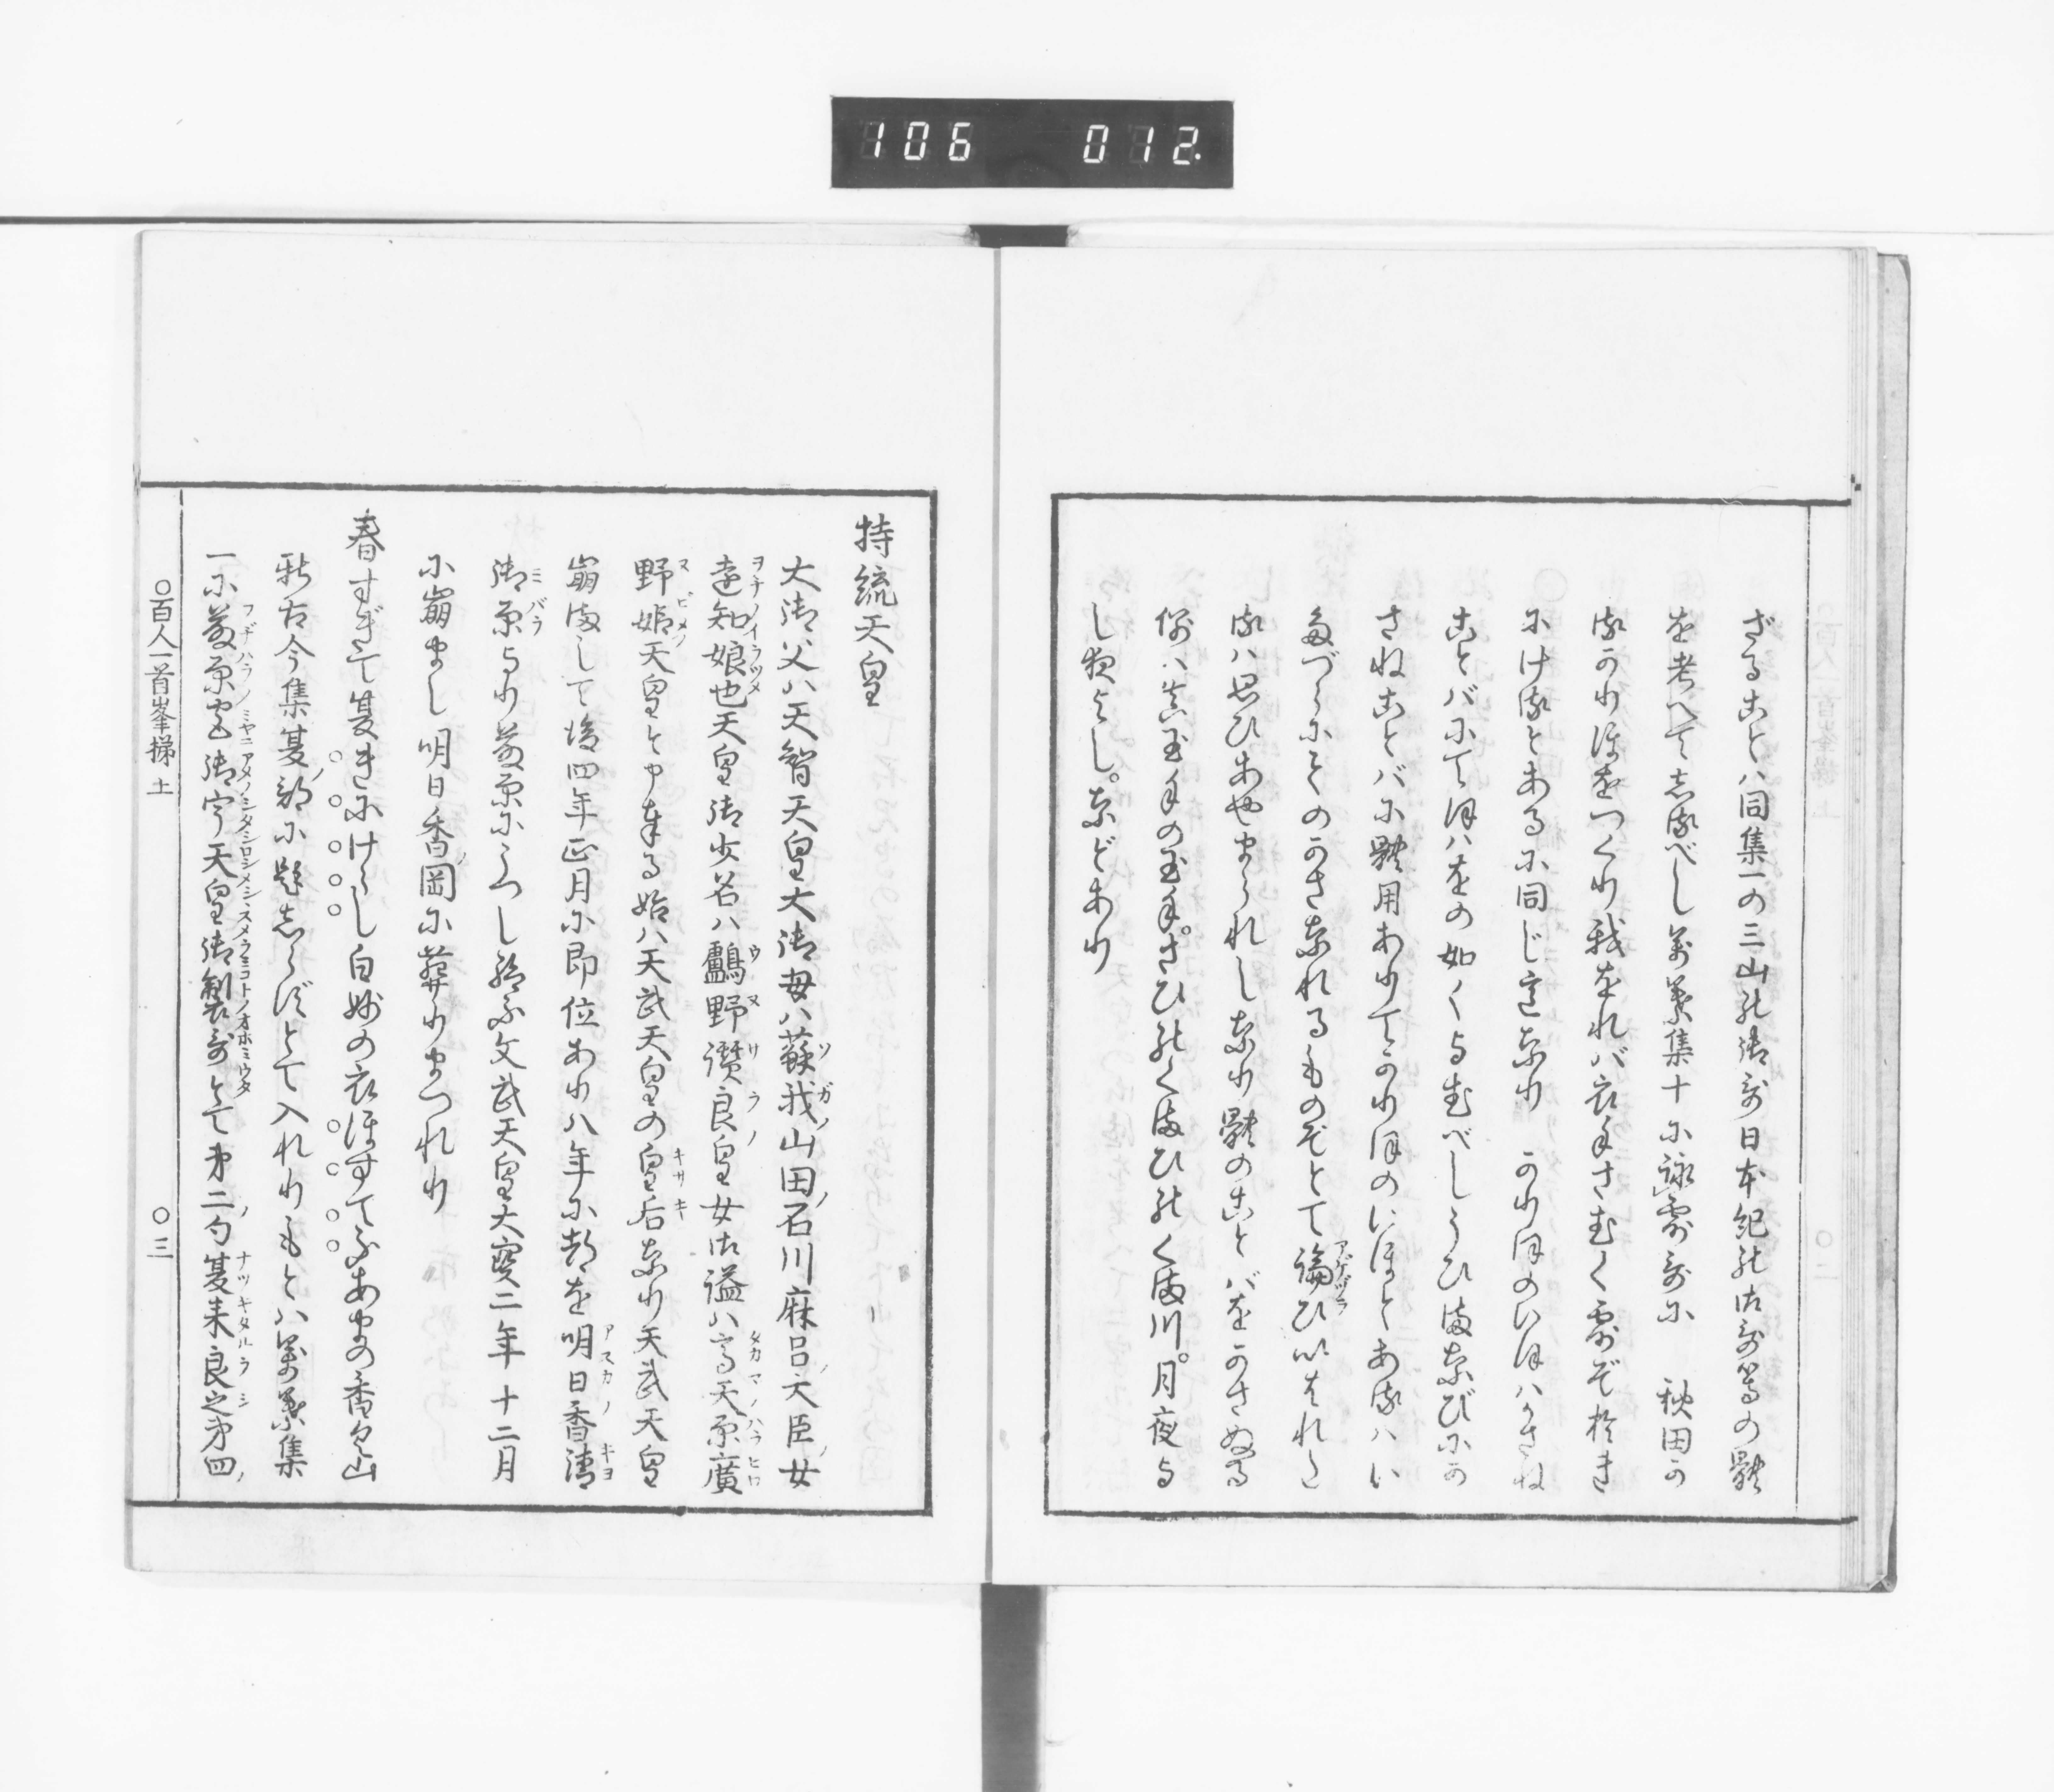 106 012
ざることハ同集一の三山の御哥日本紀の御哥等の體
を考へて志るべし萬葉集十に詠露哥に 秋田か
るかりほをつくり我をれバ衣手さむく露ぞおき
にけるとあるに同じ意なり かりほのいほハかさね
ことバにてほハをの如くよむべしうひまなびにか
さねことバに體用ありてかりほのいほとあるハい
たづらにそのかさなれるものぞとて論ひいはれし
るハ思ひあやまられしなり體のことバをかさぬる
例ハ真玉手の玉手。さひのくまひのくま川。月夜よ
し夜よし。などあり
持統天皇
大御父ハ天智天皇大御母ハ蘇我山田石川麻呂大臣女
遠知娘也天皇御少名ハ鸕野讃良皇女御謚ハ高天原廣
野姫天皇と申奉る始ハ天武天皇の皇后なり天武天皇
崩ましして後四年正月に即位あり八年に都を明日香清
御原より藤原にうつし給ふ文武天皇大寶二年十二月
に崩まし明日香岡に葬りまつれり
春すぎて夏きにけらし白妙の衣ほすてふあまの香具山
新古今集夏部に題志らずとて入れりもとハ萬葉集
一に藤原宮御宇天皇御製哥とて第二句夏来良之第四
○百人一首峯梯 上 ○三